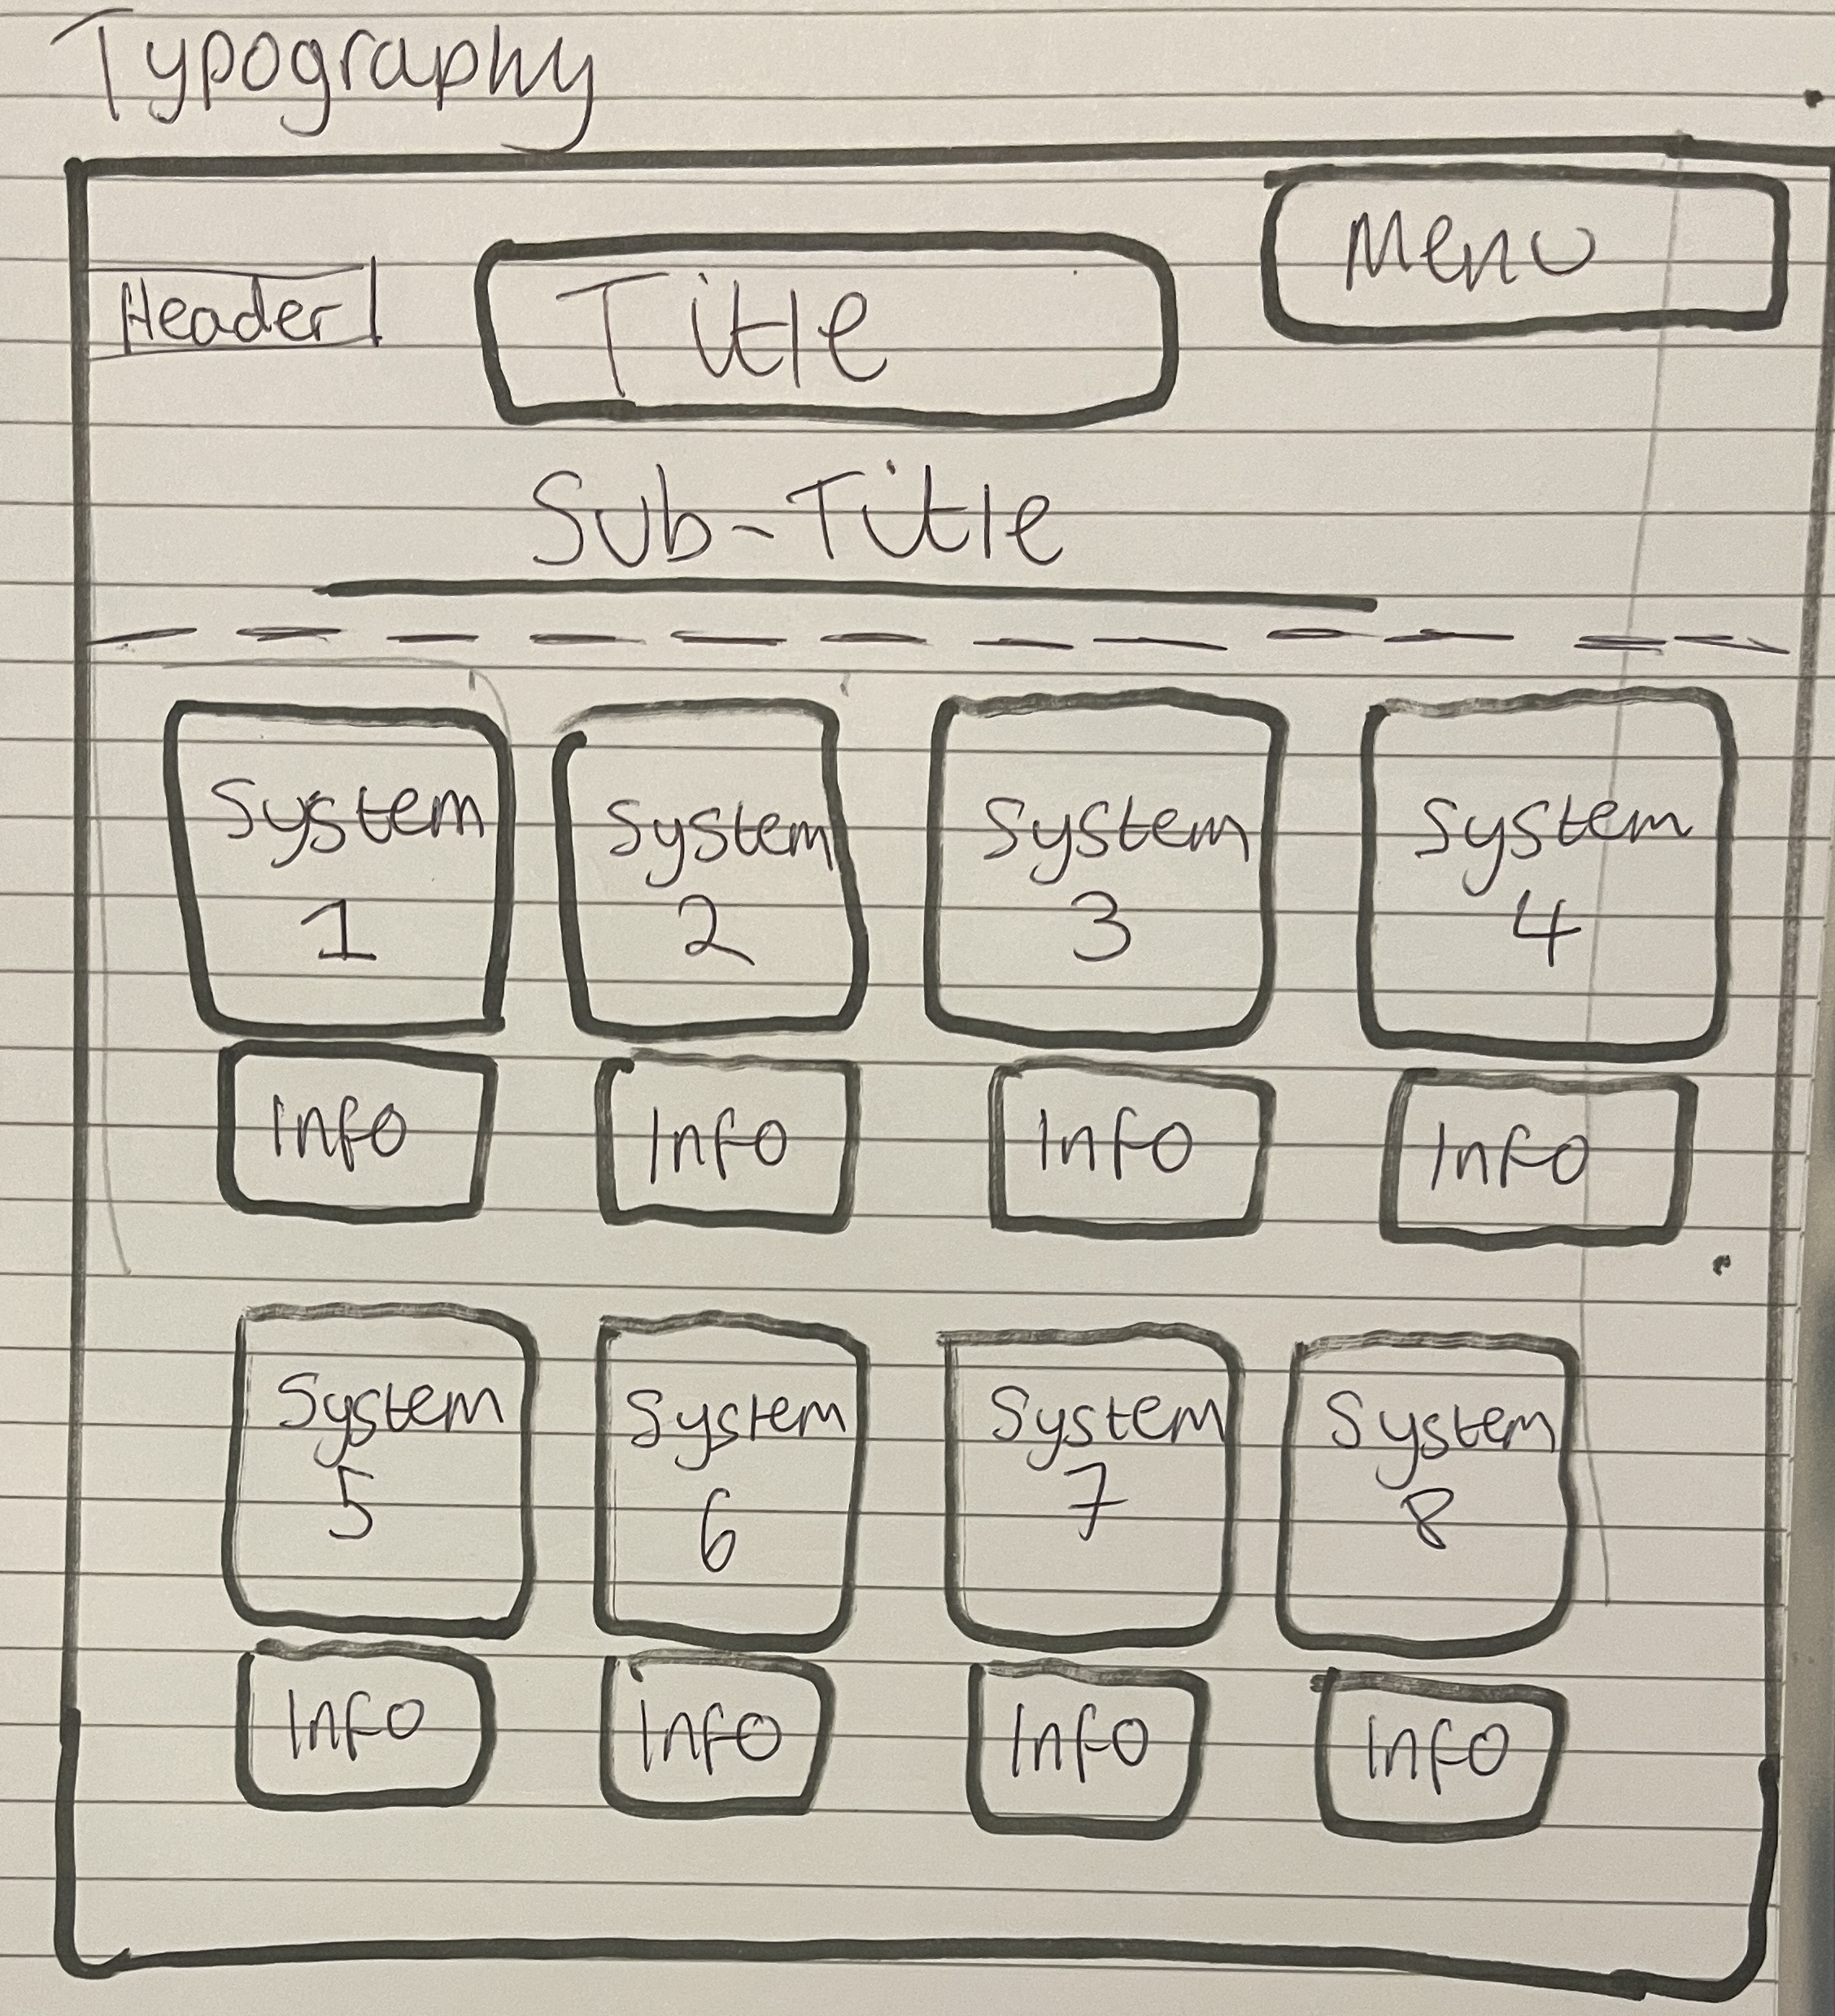 Typography
Menu
Header
Title
Sub-Title
System
1
System
2
System
3
System
4
Info
Info
Info
Info
System
5
System
6
System
7
System
8
Info
Info
Info
Info